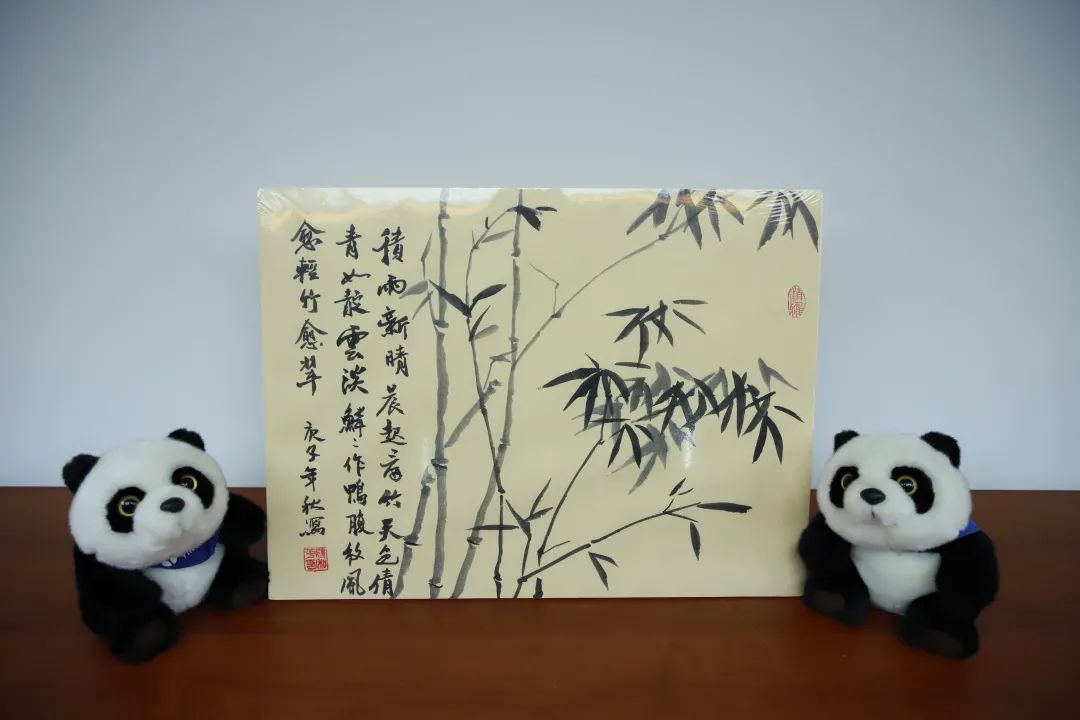 積雨新晴晨起竹天色倩
青如靛雲淡鱗々作鴨腹紋風
愈輕竹愈翠
庚子年秋寫